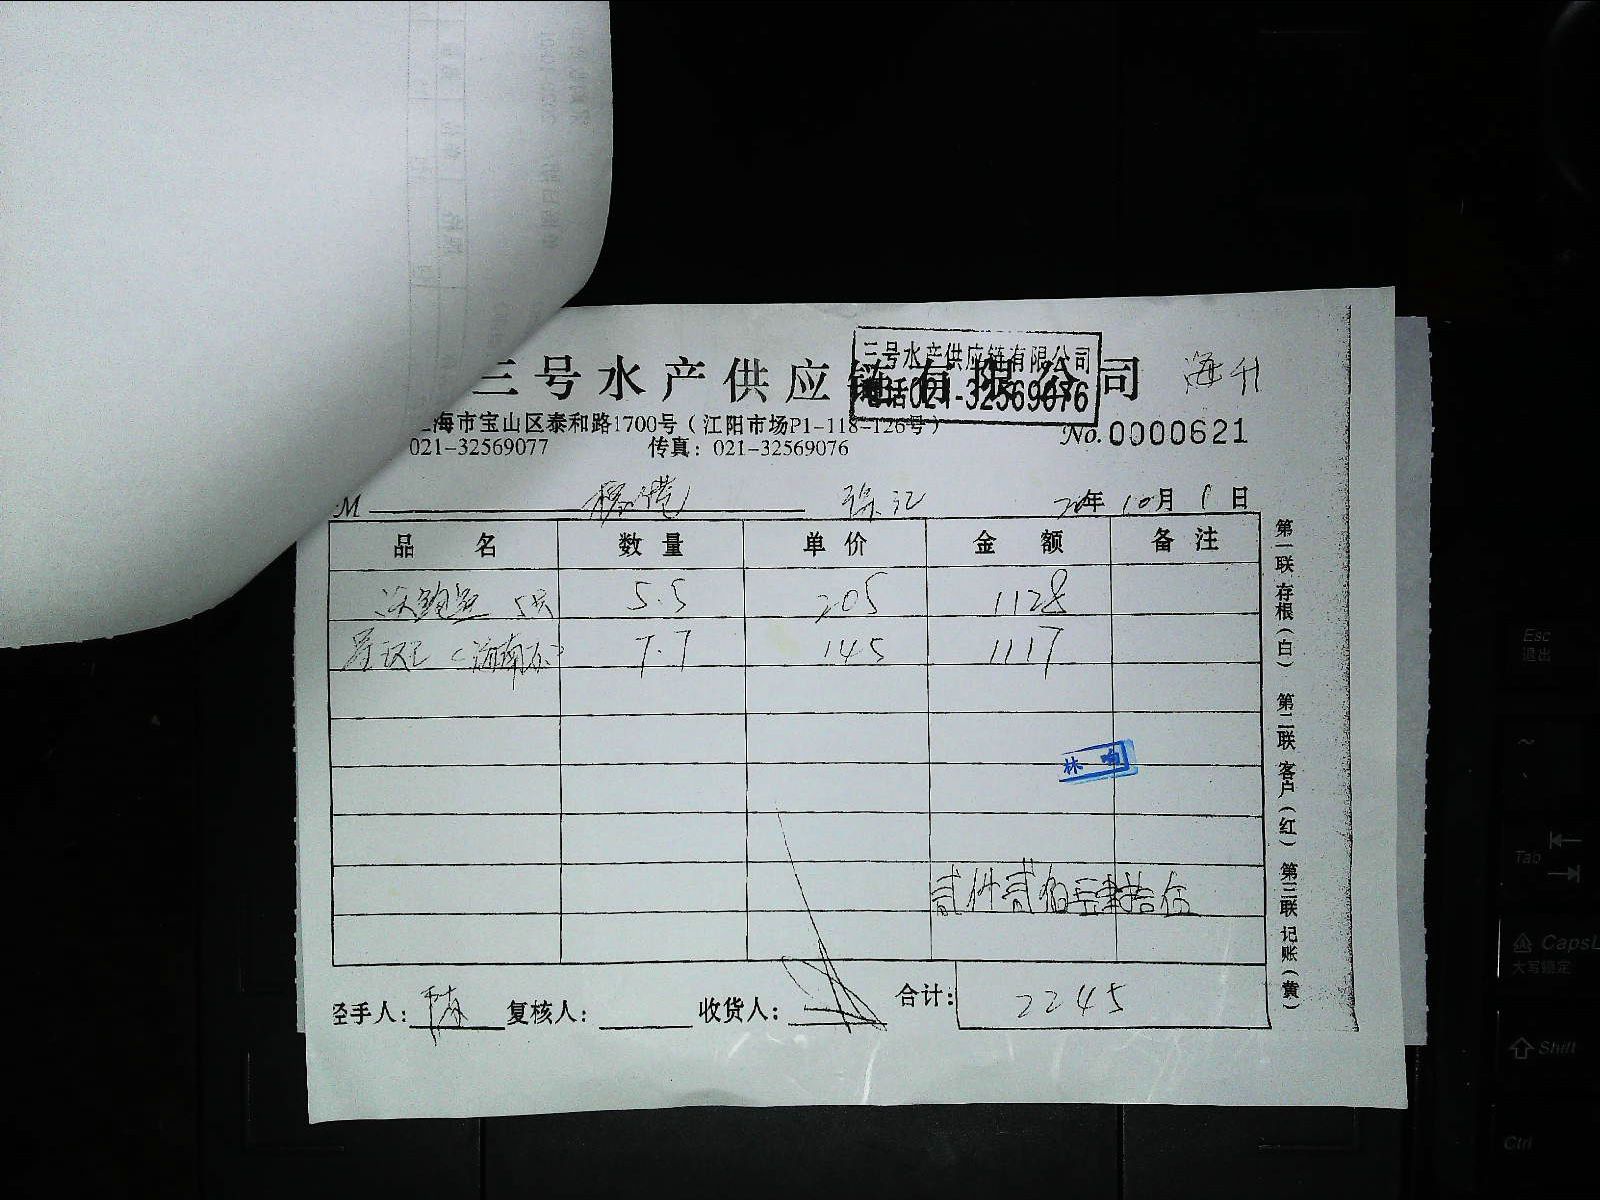 三号水产供应链有限公司
三号水产供应链有限公司
电话021-32569076
海市宝山区泰和路1700号（江阳市场P1-118-126号）
021-32569077 传真：021-32569076
No.0000621
M
年 10 月 1 日
品名 数量 单价 金额 备注
5.5 205 1128
7.7 145 1117
林
贰仟贰佰肆拾伍
经手人： 复核人： 收货人： 合计： 2245
第一联 存根（白） 第二联 客户（红） 第三联 记账（黄）
Esc
退出
~
Tab
CapsL
大写锁定
Shift
Ctrl